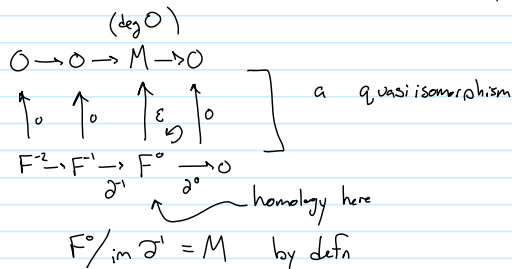 (deg 0)
0 → 0 → M → 0
↑0 ↑0 ↑ε ↑0 a quasiisomorphism
F⁻² → F⁻¹ → F⁰ → 0
∂⁻¹ ∂⁰
homology here
F⁰/im ∂⁻¹ = M by defn